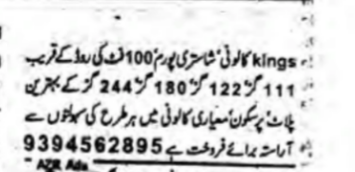 kings کالونی' شاستری پورم' 100 فٹ کی روڈ کے قریب
111 گز' 122 گز' 180 گز' 244 گز کے بہترین
پلاٹ' پرسکون' معیاری کالونی میں ہر طرح کی سہولتوں سے
آراستہ برائے فروخت ہے 9394562895
AZR Ads